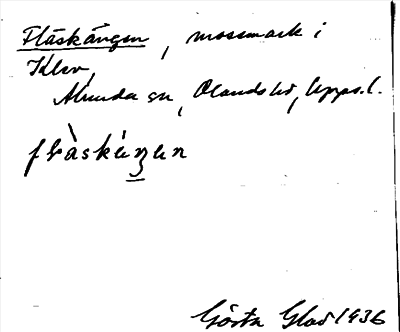 Fläskängen, mossmark i
Klev,
Alunda sn, Olands hd, Upps. l.
flàskéŋen
Gösta Glad 1936